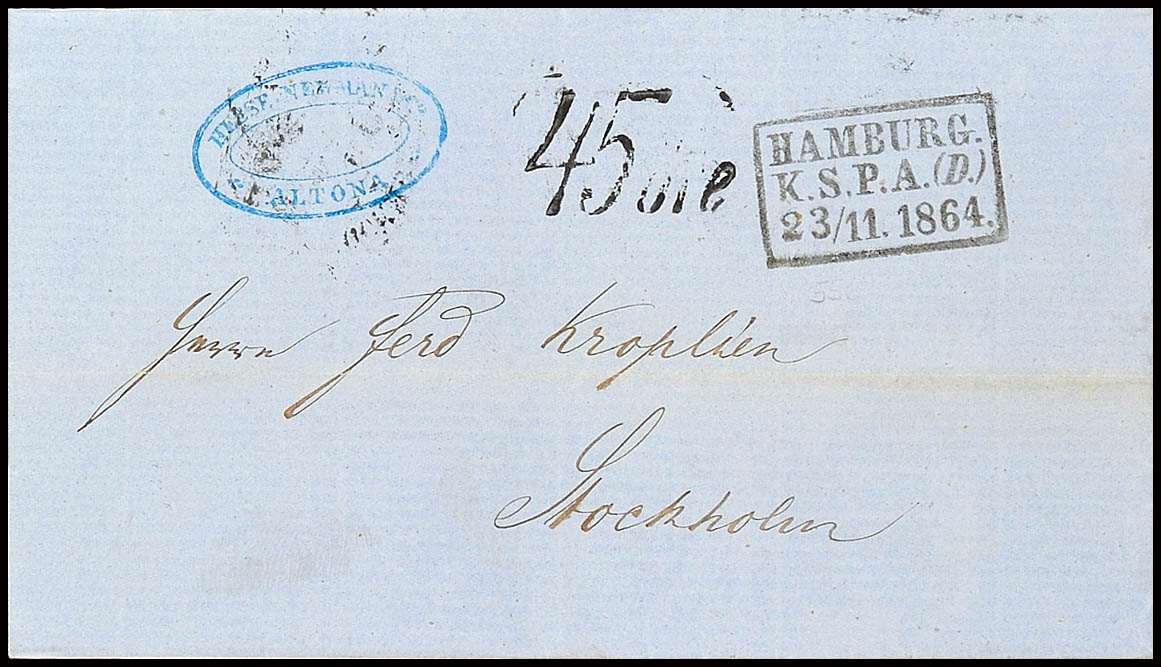 HESSE NEWMAN & Co
ALTONA
45 öre
HAMBURG.
K.S.P.A.(D.)
23/11.1864.
Herrn Ferd Kroplien
Stockholm